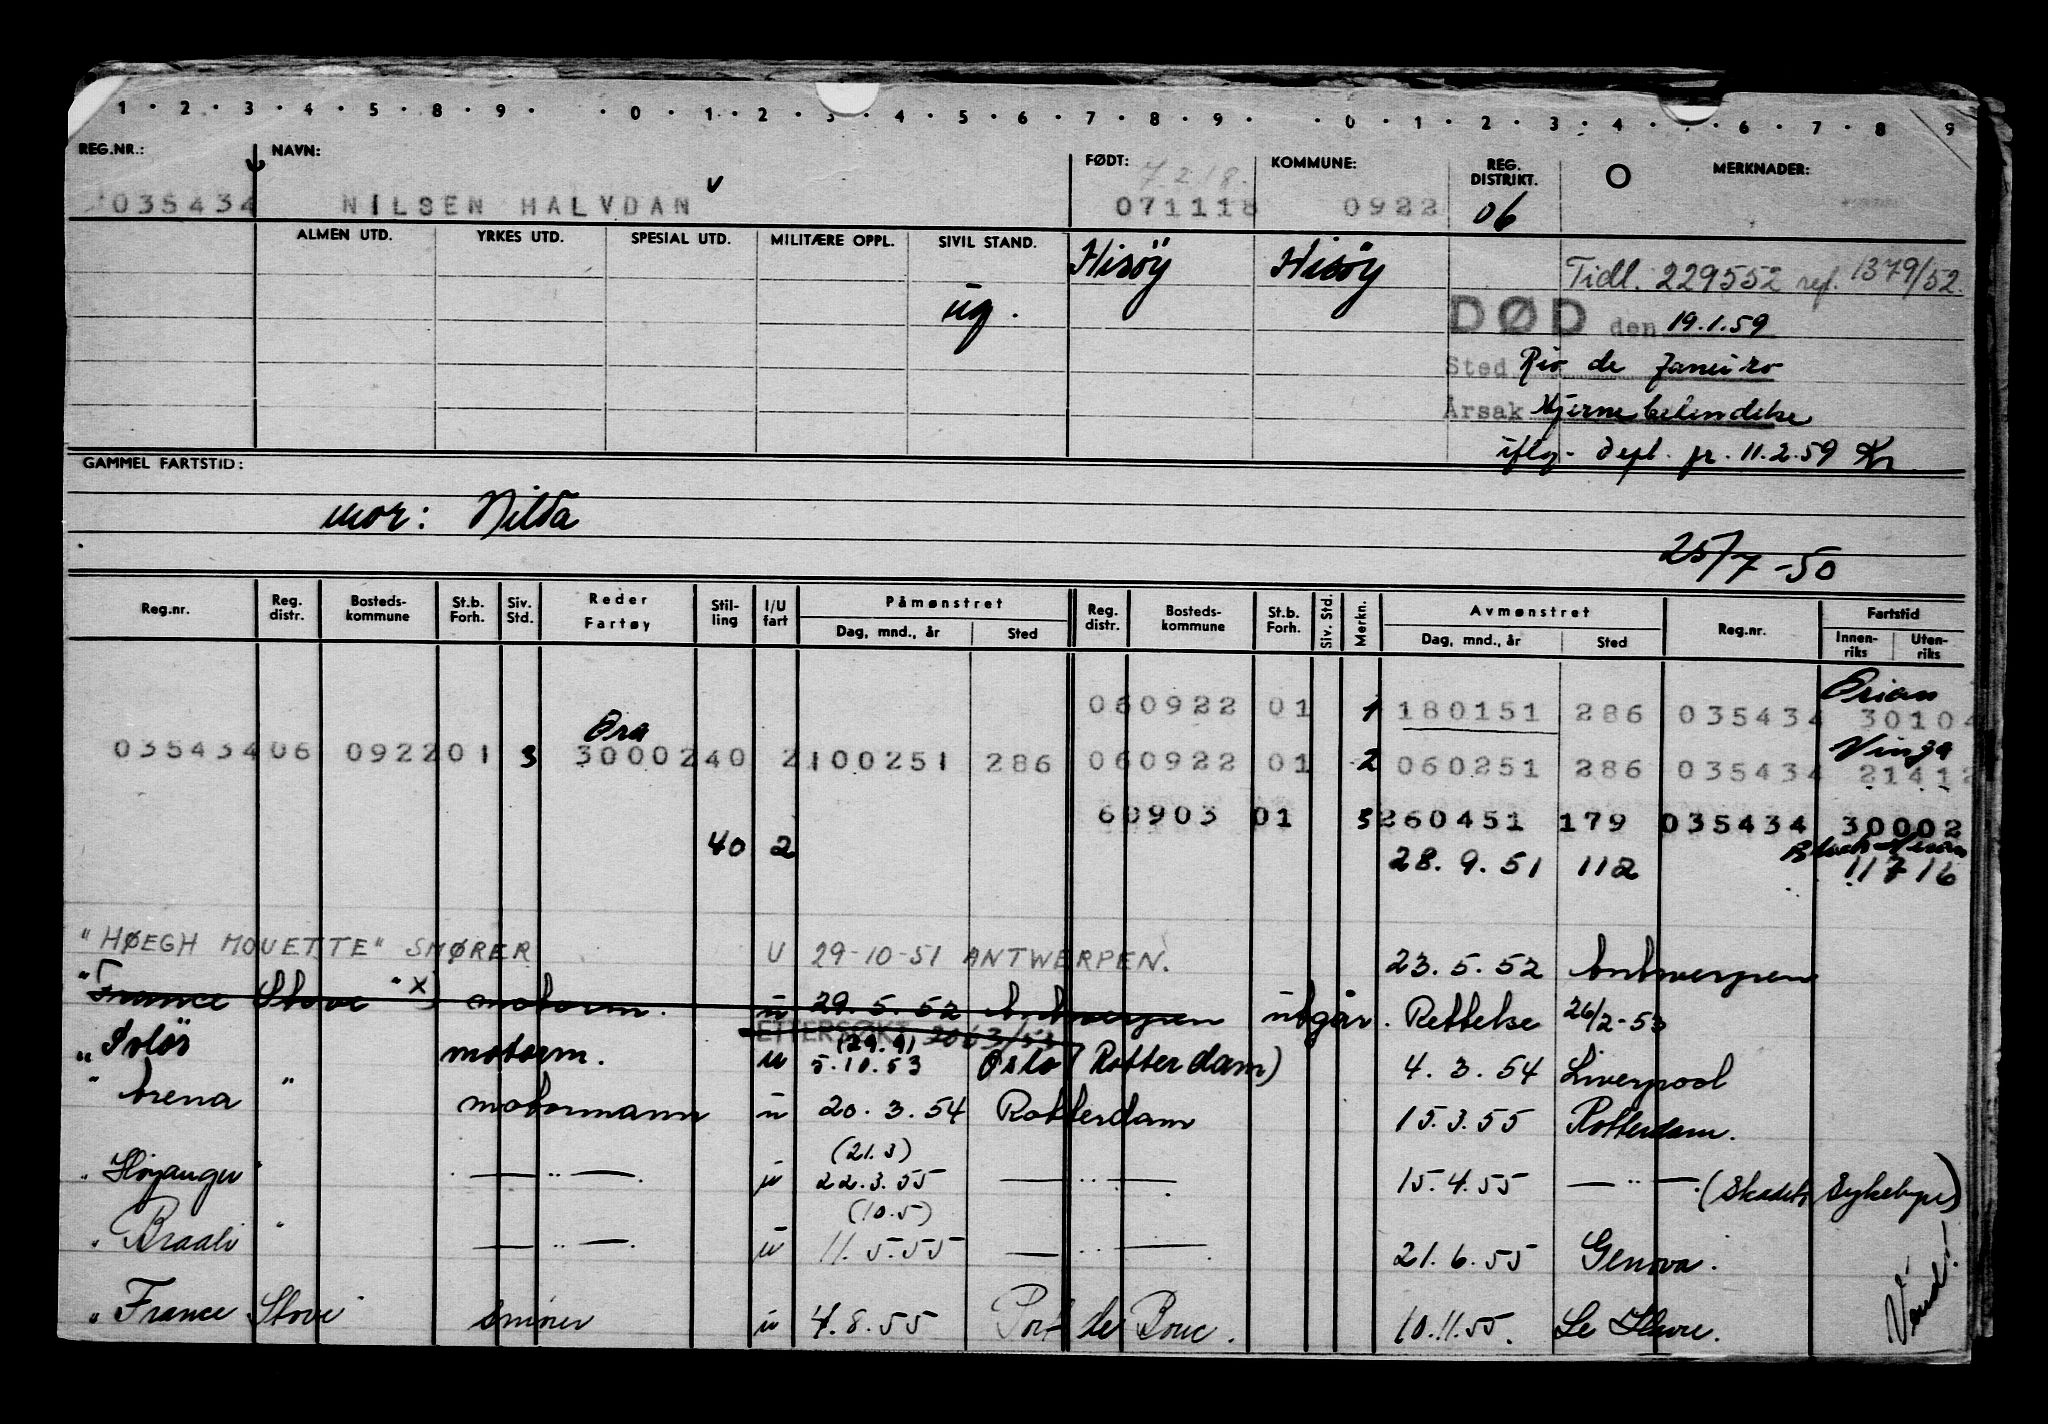 1 · 2 · 3 · 4 · 5 · 8 · 9 · · 0 · 1 · 2 · 3 · 4 · 5 · 6 · 7 · 8 · 9 · · 0 · 1 · 2 · 3 · 4 · · 6 · 7 · 8 · 9
REG.NR.: NAVN: FØDT: 7.2.18. KOMMUNE: REG. DISTRIKT. O MERKNADER:
035434 NILSEN HALVDAN v 071118 0922 06
ALMEN UTD. YRKES UTD. SPESIAL UTD. MILITÆRE OPPL. SIVIL STAND. Hisöy Hisöy Tidl. 229552 ref. 1379/52.
ug. DØD den 19.1.59
Sted Rio de Janeiro
Årsak Hjernebetendelse
iflg. dept. fr. 11.2.59 Kr
GAMMEL FARTSTID:
mor: Nilda
25/7-50
Reg.nr. Reg. distr. Bosteds-kommune St.b. Forh. Siv. Std. Reder Fartøy Stil-ling I/U fart Påmønstret Dag, mnd., år Sted Reg. distr. Bosteds-kommune St.b. Forh. Siv. Std. Merkn. Avmønstret Dag, mnd., år Sted Reg.nr. Fartstid Innen-riks Uten-riks
Orian
060922 01 1 180151 286 035434 30104
Ora Vinga
035434 06 0922 01 3 30002 40 2 100251 286 060922 01 2 060251 286 035434 21412
60903 01 3 260451 179 035434 30002
40 2 28.9.51 112 11716
"HØEGH MOUETTE" SMØRER U 29-10-51 ANTWERPEN. 23.5.52 Antwerpen
"France Stove" x) motorm. u 29.5.52 Antwerpen utgår. Rettelse 26/2-53
ETTERSØKT 2063/53
(29.9)
" Solör motorm. u 5.10.53 Oslo (Rotterdam) 4.3.54 Liverpool
" Arena " motormann u 20.3.54 Rotterdam 15.3.55 Rotterdam.
(21.3)
" Høyanger " — " — u 22.3.55 — " — 15.4.55 — " — (Skadet, Sykehjul)
(10.5)
" Braali " — " — u 11.5.55 — " — 21.6.55 Genova.
" France Stove " Smører u 4.8.55 Port de Bouc. 10.11.55. Le Havre.
Vend!